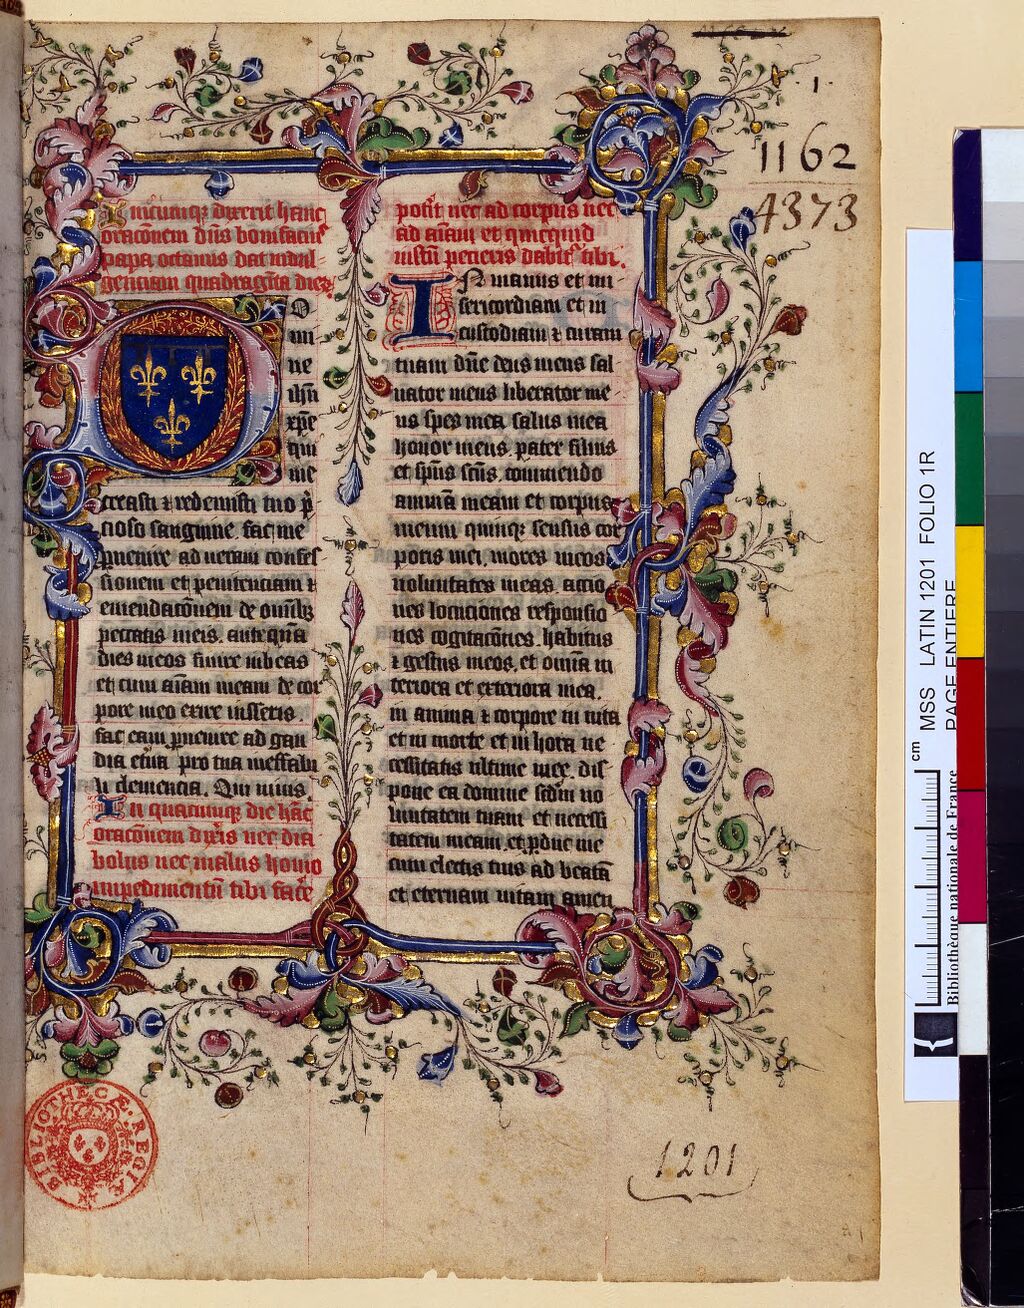 1
1162
4373
In cuiuſcūqꝫ dixerit hanc
oracōnem dn̄s bonifacius
papa octauus dat indul
genciam quadragīta dieꝝ
D
O
mi
ne
ihū
xp̄e
qui
me
creaſti ⁊ redemiſti tuo p̄
cioſo ſanguine. fac me
ꝓuenire ad ueram confeſ
ſionem et penitenciam ⁊
emendacōnem de om̄ībꝫ
peccatis meis. anteꝗ̄
dies meos finire iubeas
et cum aīam meam de cor
pore meo exire iuſſeris.
fac eam ꝓuenire ad gau
dia et̄na. pro tua ineffabi
li clementia. Qui uiuis.
In quacunqꝫ die hāc
oracōnem dix̄is nec dia
bolus nec malus homo
impedimentū tibi fac̄e
pot̄it nec ad corpus nec
ad aīam et quicquid
iuſtū pecieris dabit̄ tibi.
IN manus et mi
ſericordiam et in
cuſtodiam ⁊ curam
tuam dn̄e deus meus ſal
uator meus liberator me
us ſpes mea ſalus mea
honor meus. pater filius
et ſpūs ſcūs. commendo
animā meam et corpus
meum quinqꝫ ſenſus cor
poris mei. mores meos
uoluntates meas. actio
nes locuciones reſponſio
nes cogitacōnes habitus
⁊ geſtus meos. et om̄ia in
teriora et exteriora mea.
in anima ⁊ corpore in uita
et in morte et in hora ne
ceſſitatis ultime mee. diſ
pone ea domine ſecd̄m uo
luntatem tuam et neceſſi
tatem meam. et ꝑduc me
cum electis tuis ad beatā
et eternam uitam amen
1201
BIBLIOTHECÆ REGIÆ
MSS LATIN 1201 FOLIO 1R
PAGE ENTIERE
cm
Bibliothèque nationale de France